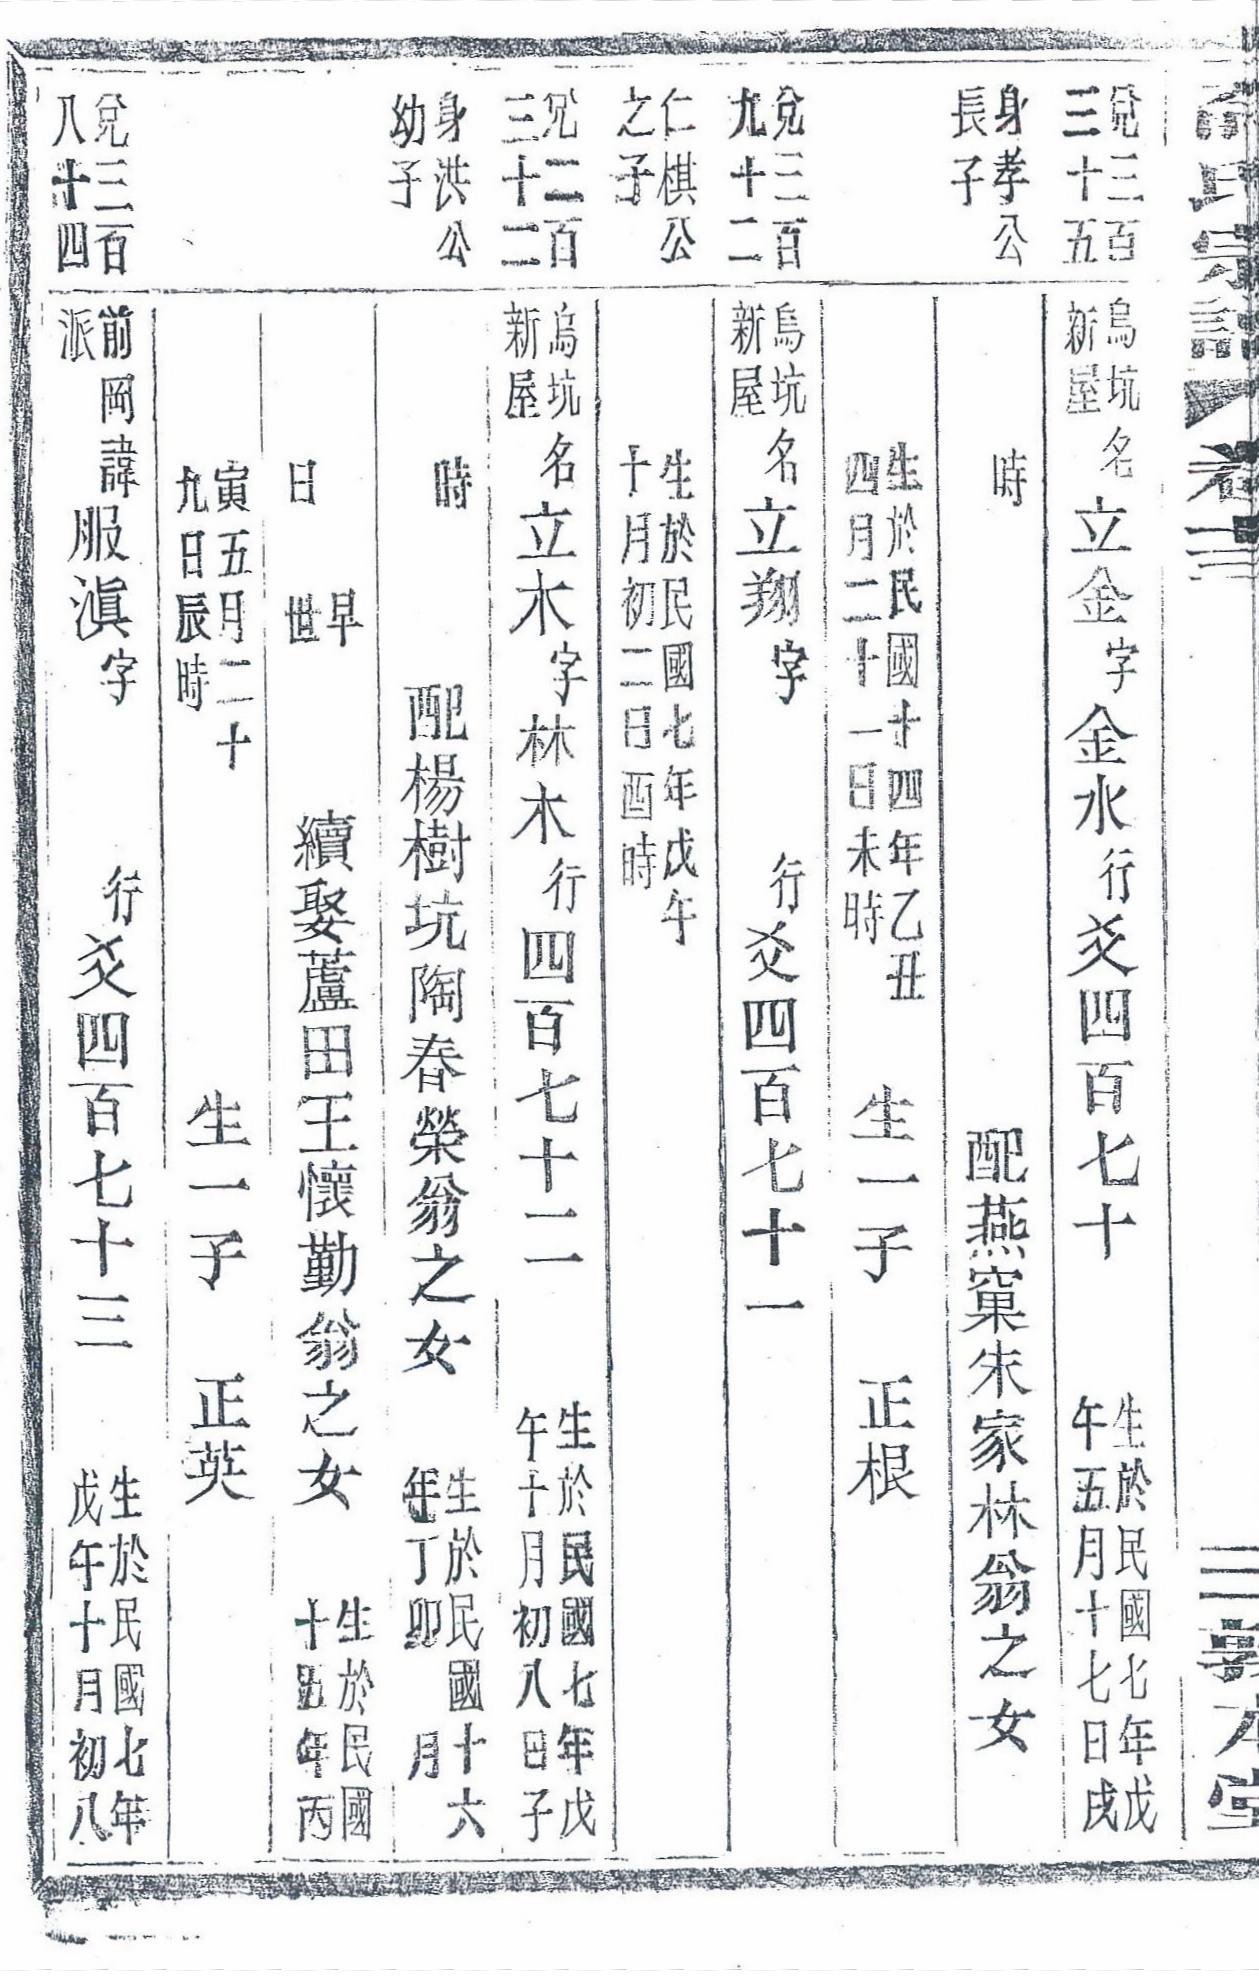 氏宗譜 卷三 三 敦本堂
兌三百三十五
烏坑新屋 名立金 字金水 行爻四百七十 生於民國七年戊午五月十七日戌
身孝公長子
時 配燕窠朱家林翁之女
生於民國十四年乙丑四月二十一日未時 生一子 正根
兌三百九十二
烏坑新屋 名立翔 字 行爻四百七十一
仁棋公之子
生於民國七年戊午十月初二日酉時
兌二百三十二
烏坑新屋 名立木 字林木 行四百七十二 生於民國七年戊午十月初八日子
身洪公幼子
時 配楊樹坑陶春榮翁之女 生於民國十六年丁卯 月
日 早世 續娶蘆田王懷勤翁之女 生於民國十五年丙
寅五月二十九日辰時 生一子 正英
兌三百八十四
前岡派 諱服滇 字 行爻四百七十三 生於民國七年戊午十月初八